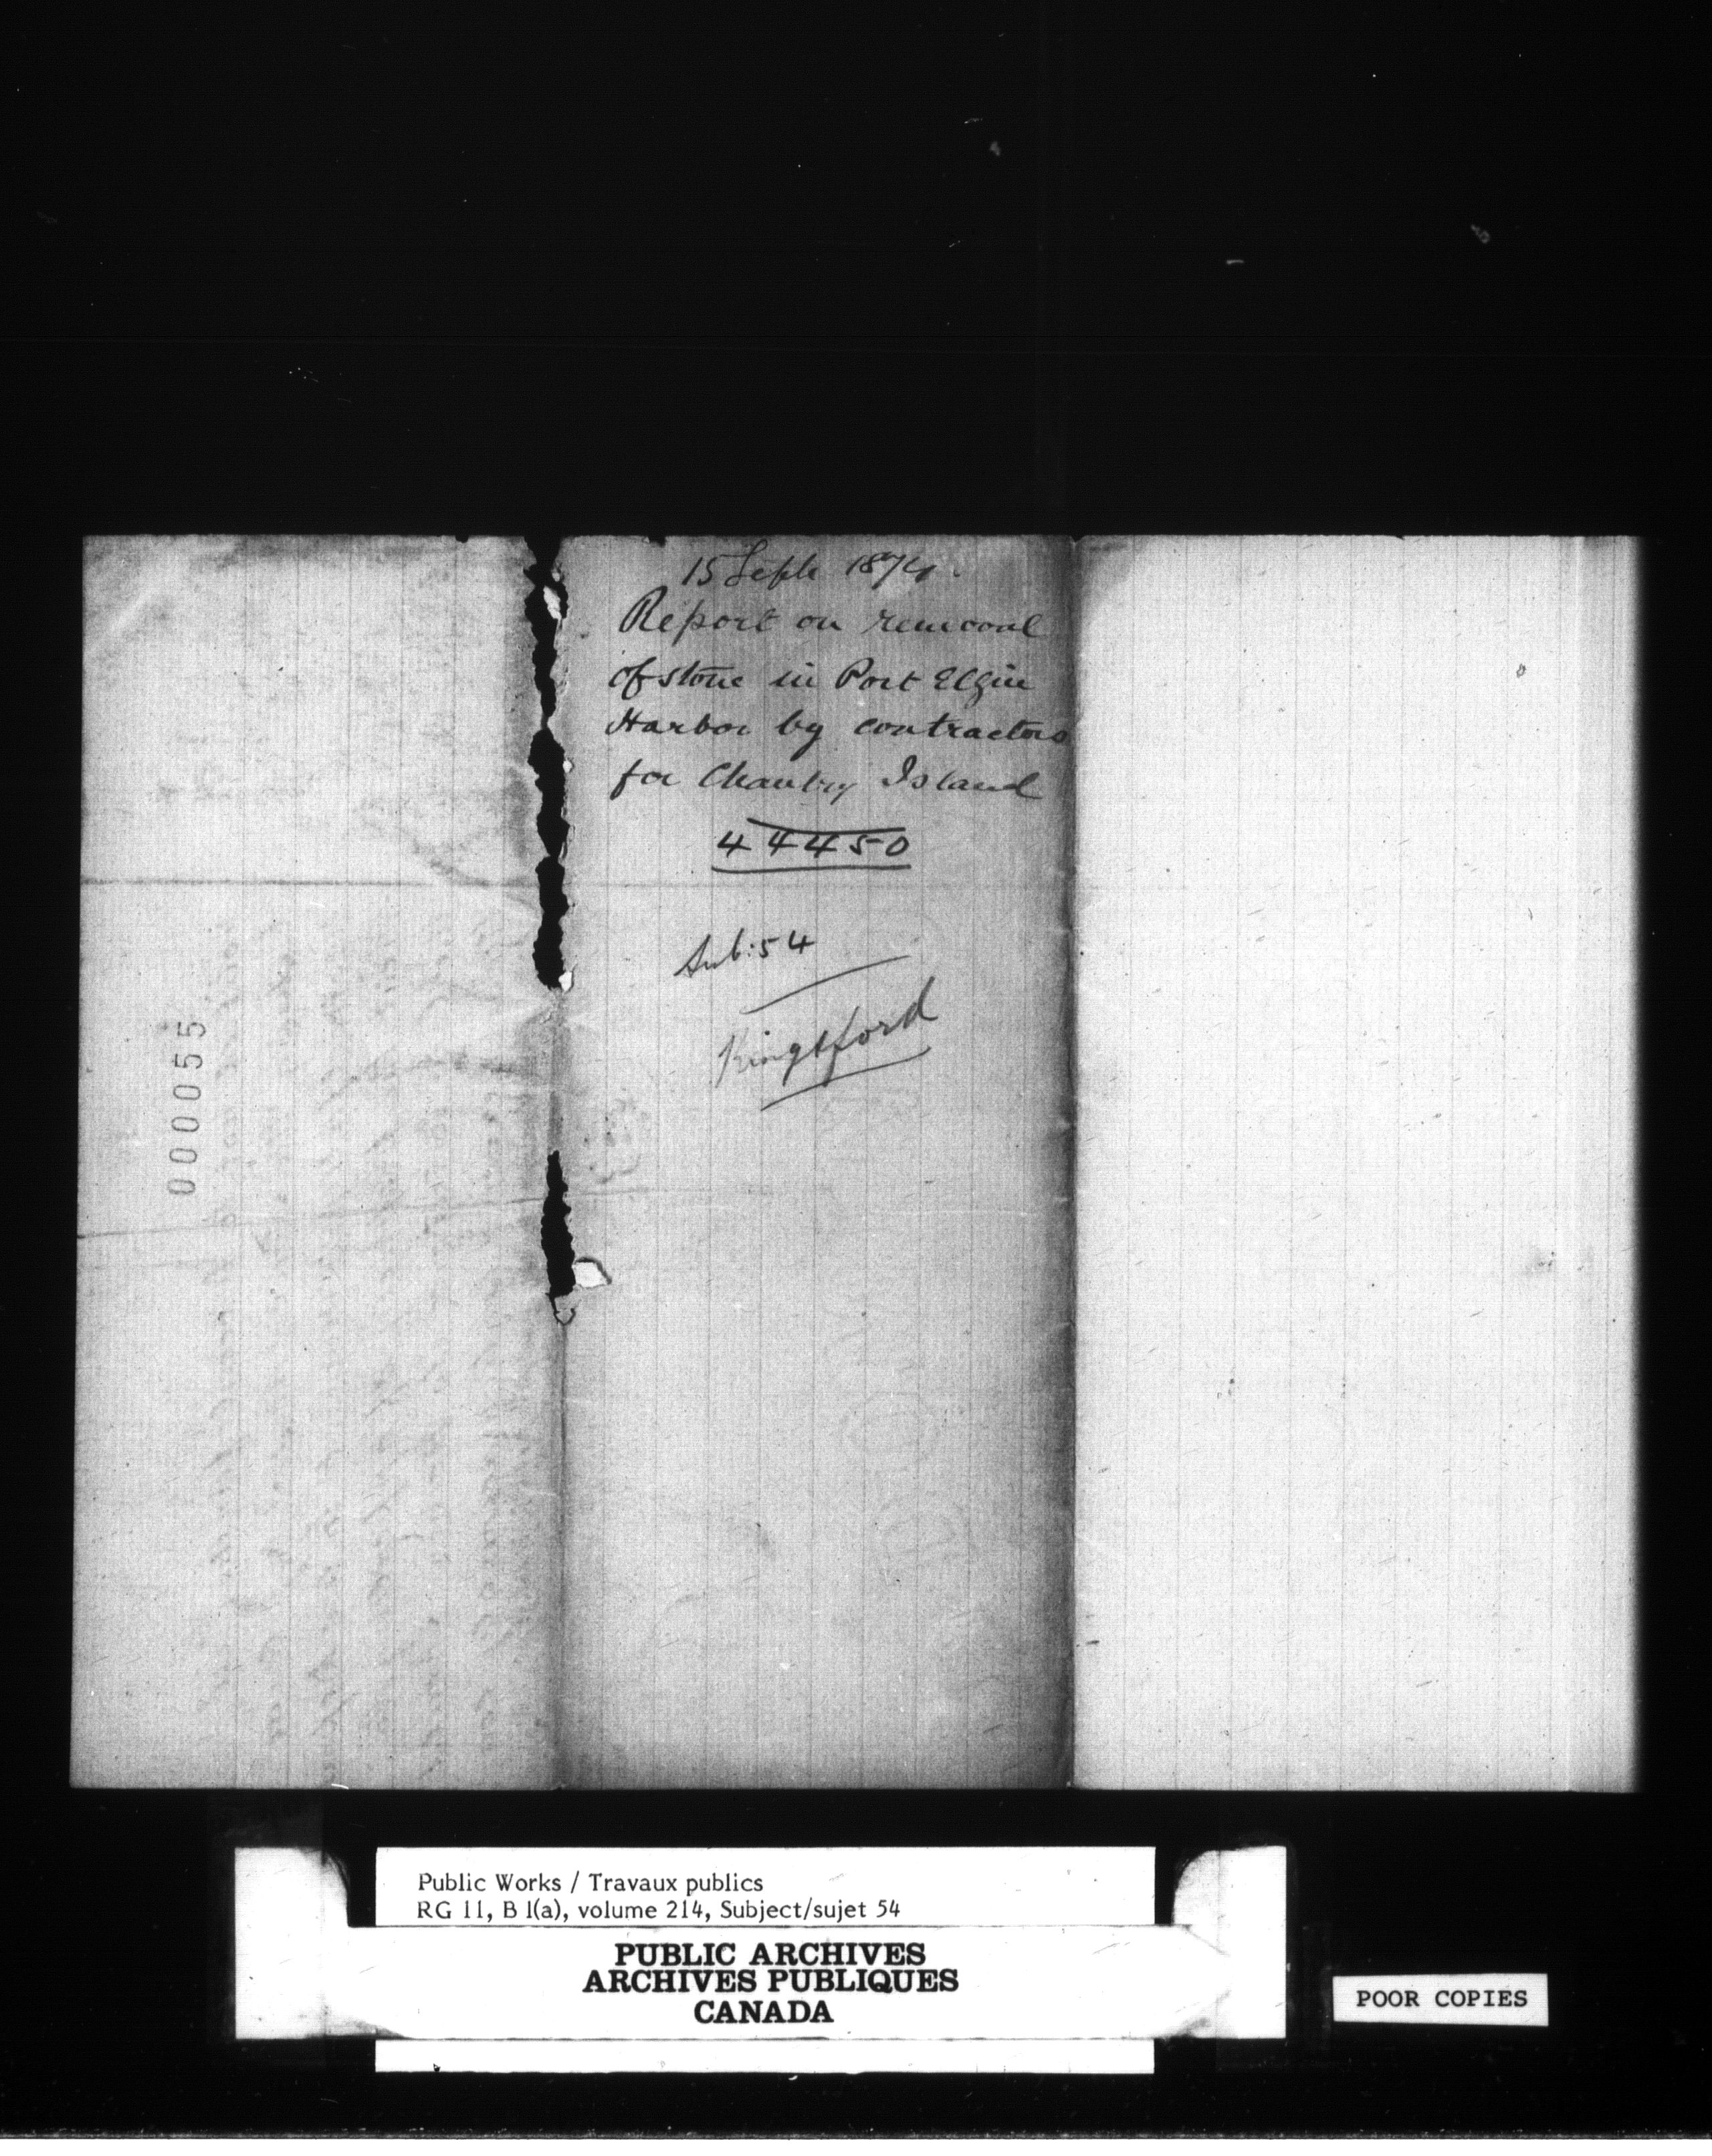 15 Septr 1874.
Report on removal
of stone in Port Elgin
Harbor by contractors
for Chantry Island
44450
Sub: 54
Kingsford
000055
Public Works / Travaux publics
RG 11, B 1(a), volume 214, Subject/sujet 54
PUBLIC ARCHIVES
ARCHIVES PUBLIQUES
CANADA
POOR COPIES